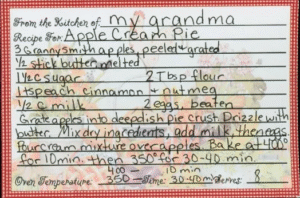 From the Kitchen of my grandma
Recipe For: Apple Cream Pie
3 Granny smith apples, peeled & grated
1/2 stick butter, melted
1 1/2 c sugar 2 Tbsp flour
1 tsp each cinnamon & nutmeg
1/2 c milk 2 eggs, beaten
Grate apples into deepdish pie crust. Drizzle with
butter. Mix dry ingredients, add milk, then eggs.
Pour cream mixture over apples. Bake at 400°
for 10 min. then 350° for 30-40 min.
400 — 10 min
Oven Temperature 350 — Time: 30-40 min Serves: 8